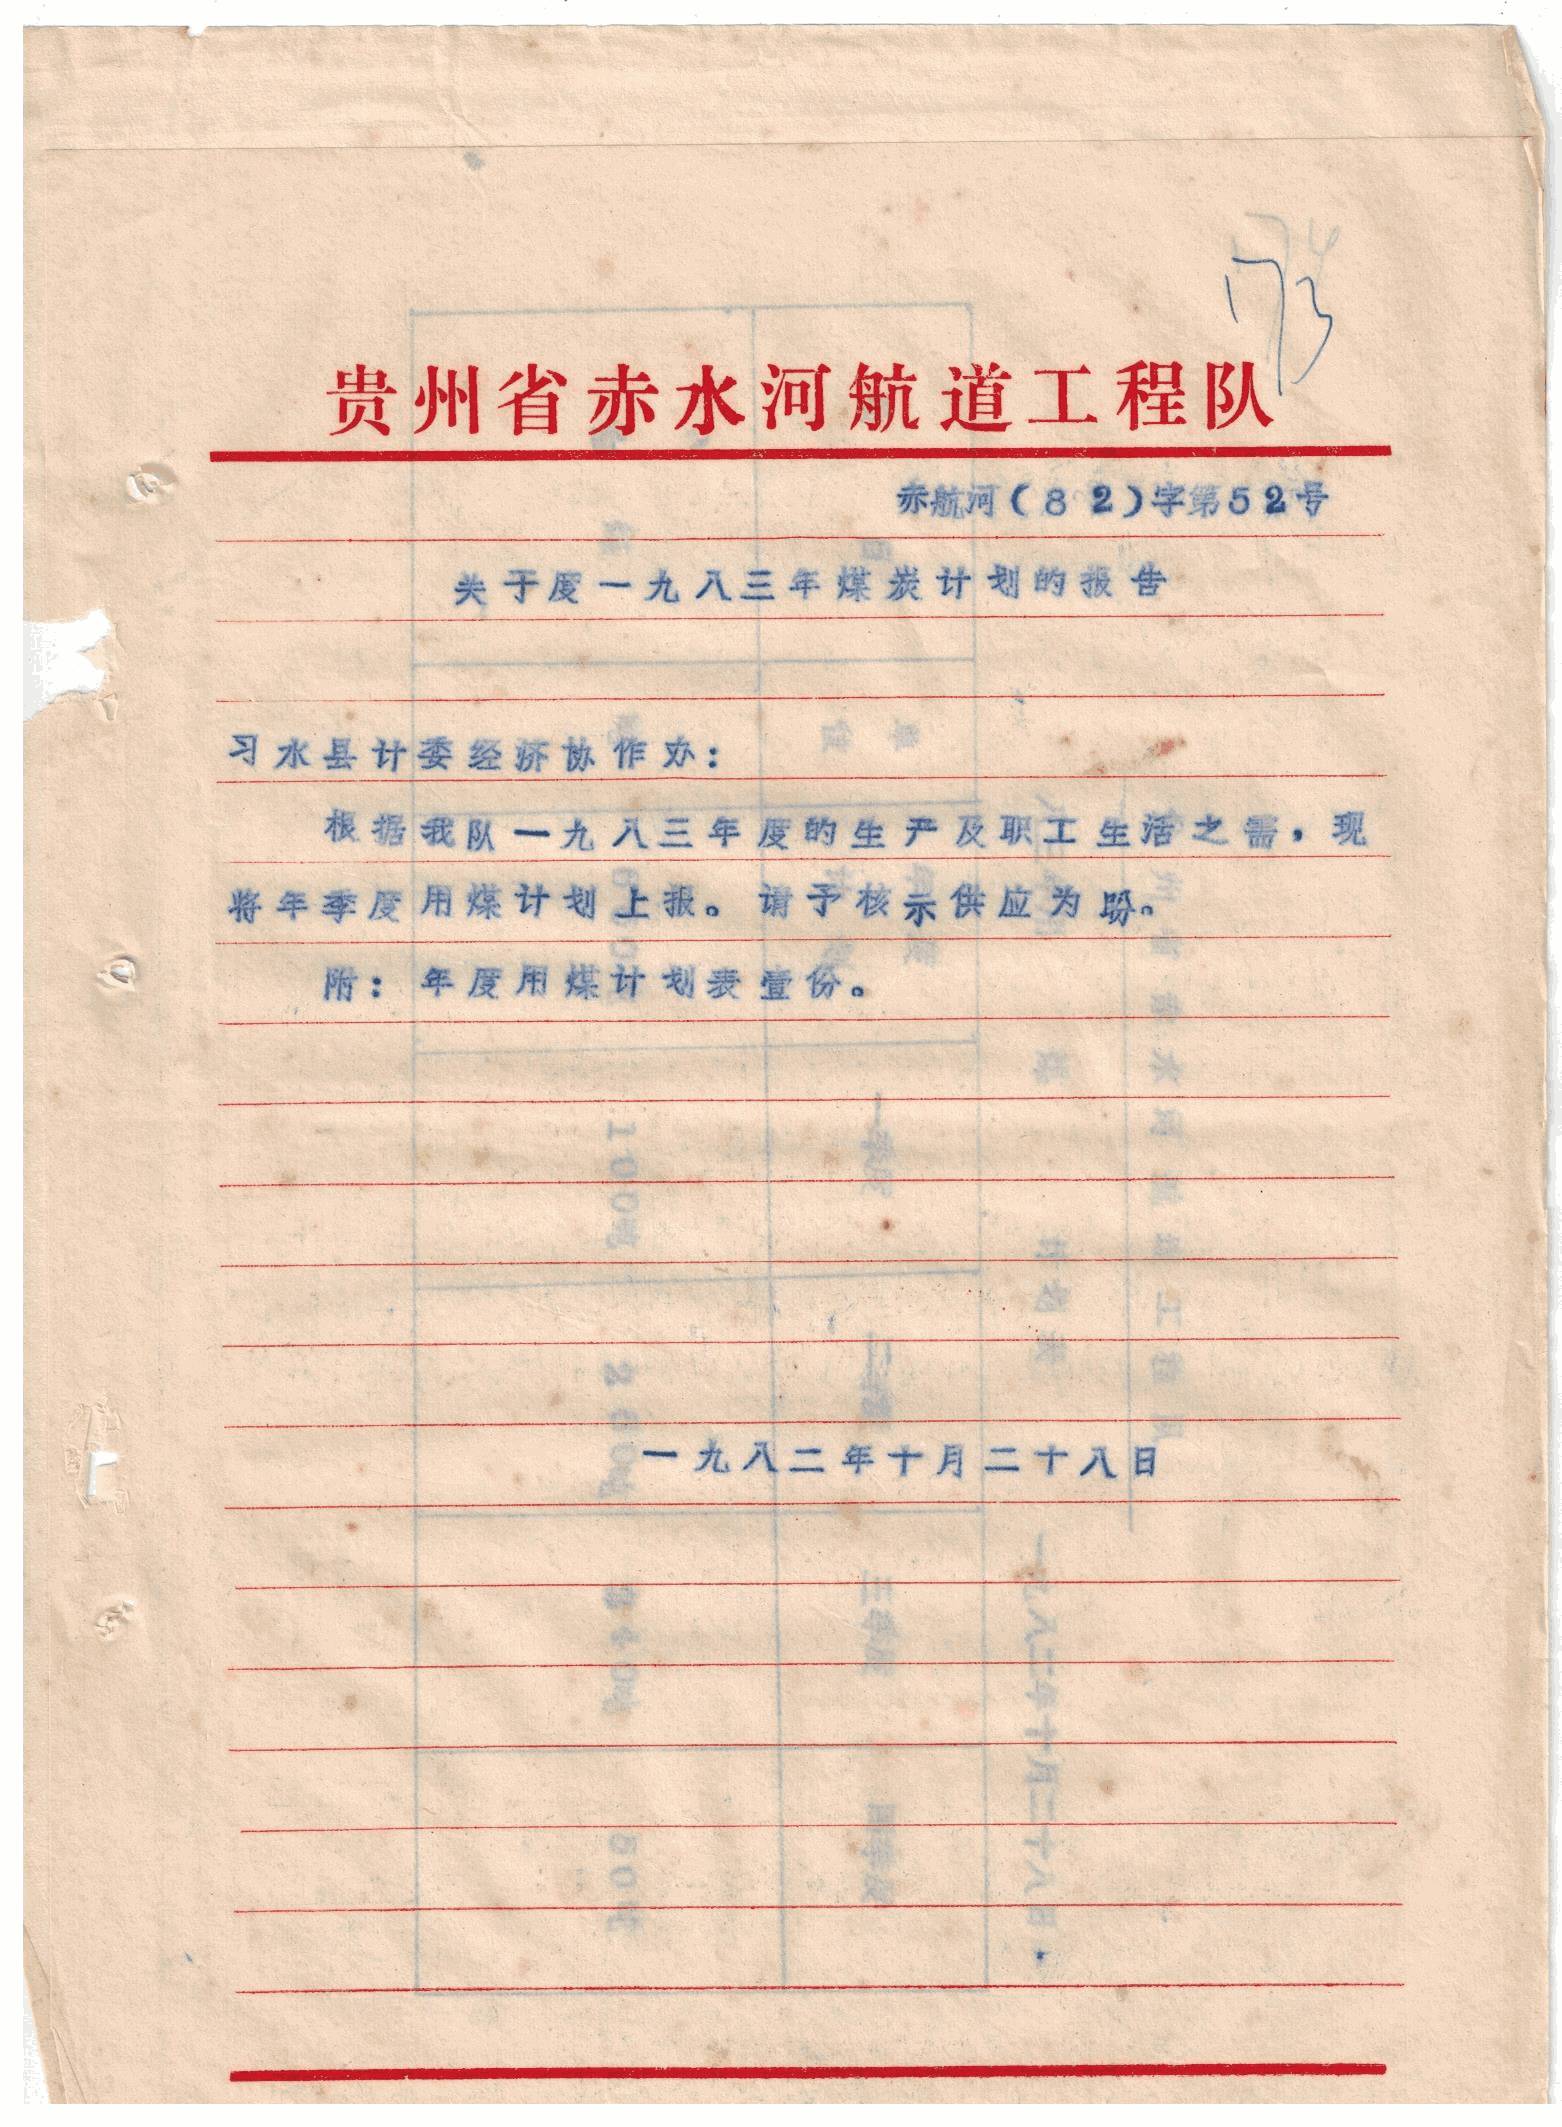 173
贵州省赤水河航道工程队
赤航河(82)字第52号
关于度一九八三年煤炭计划的报告
习水县计委经济协作办:
根据我队一九八三年度的生产及职工生活之需,现
将年季度用煤计划上报。请予核示供应为盼。
附: 年度用煤计划表壹份。
一九八二年十月二十八日